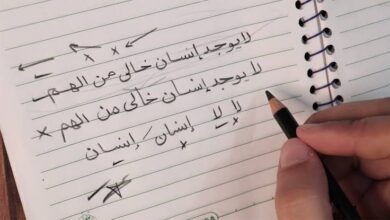 لا يوجد إنسان خالي من الهم
لا يوجد إنسان خالي من الهم
لا لا إنسان / إنسان